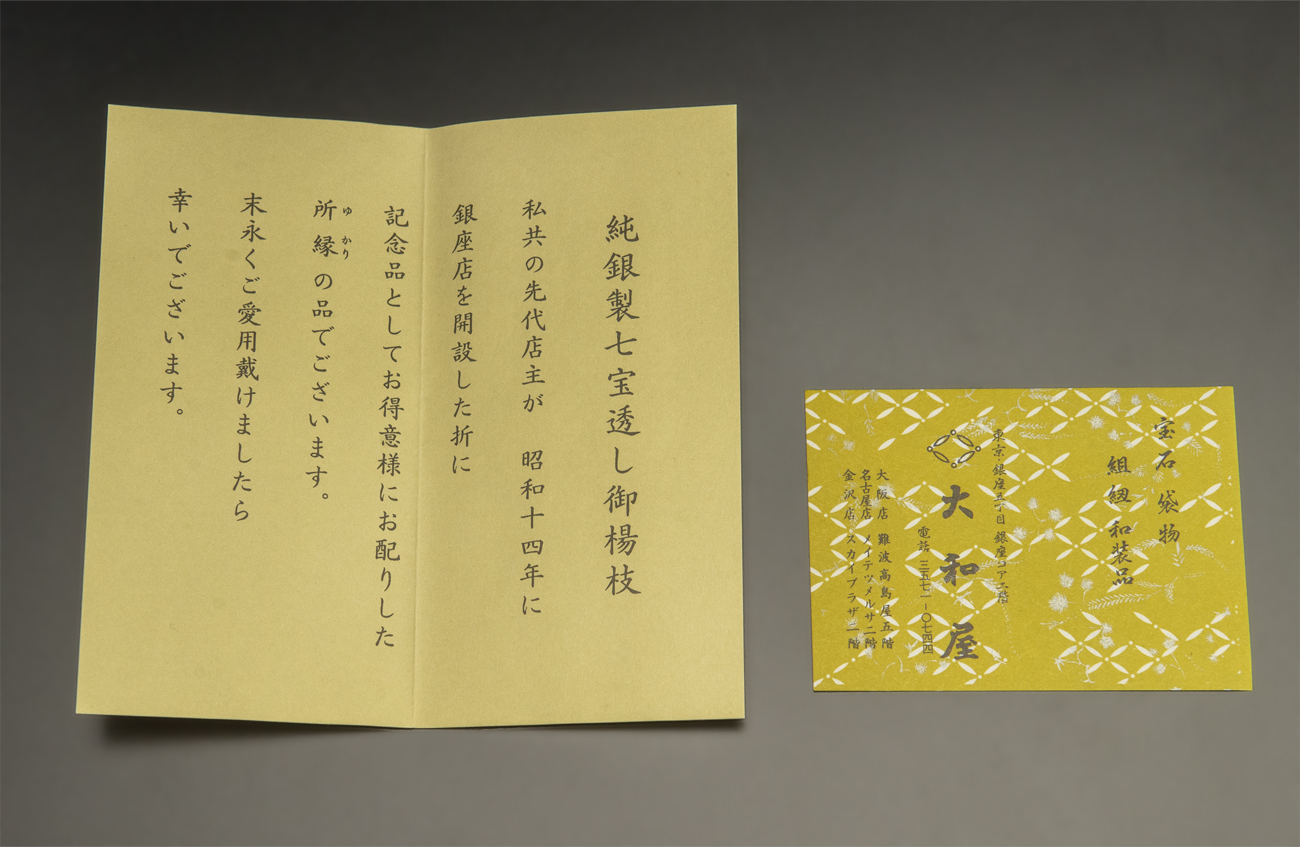 純銀製七宝透し御楊枝
私共の先代店主が　昭和十四年に
銀座店を開設した折に
記念品としてお得意様にお配りした
所縁の品でございます。
ゆかり
末永くご愛用戴けましたら
幸いでございます。
宝石 袋物
組紐 和装品
東京・銀座五丁目 銀座コア二階
大和屋
電話 三五七一-〇七四四
大阪店 難波高島屋五階
名古屋店 メイテツメルサ二階
金沢店 スカイプラザ一階